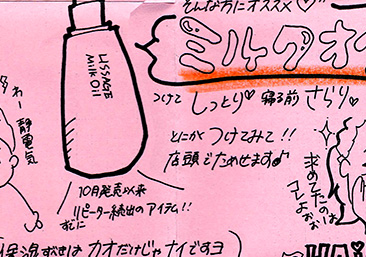 そんな方にオススメ♡
ミルクオイ
LISSAGE
MilK Oil
つけて しっとり♡ 寝る前 さらり♡
とにかく つけてみて!!
店頭でためせます♪
わー
静電気
10月発売以来
すでに
リピーター続出のアイテム!!
求めてたの
コレよぉぉ
カオだけじゃナイですヨ